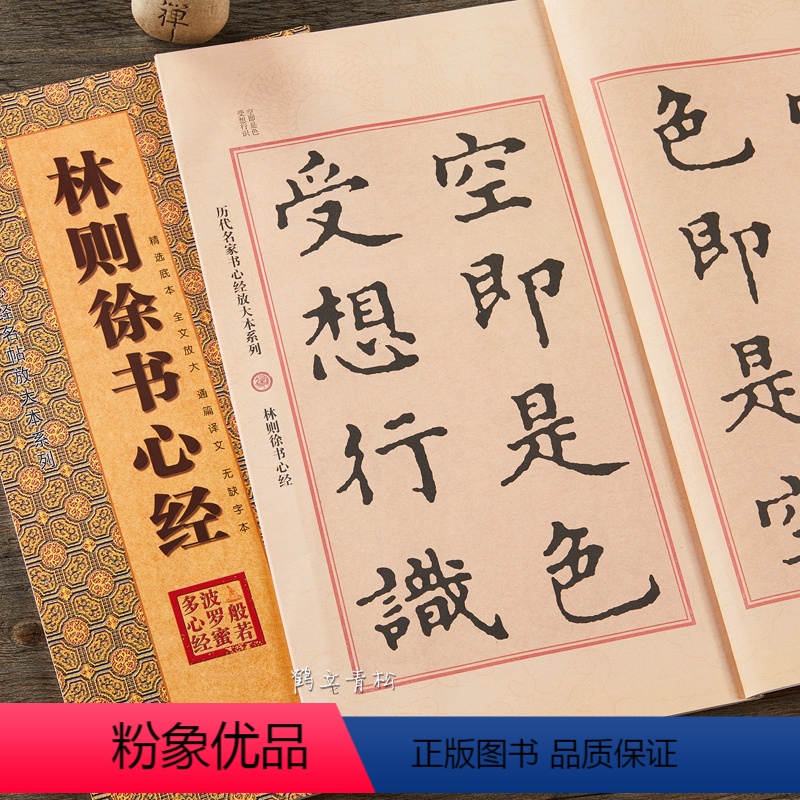 禅
林则徐书心经
精选底本 全文放大 通篇译文 无缺字本
经名帖放大本系列
般若
波罗蜜
多心经
空即是色
受想行识
历代名家书心经放大本系列
林则徐书心经
空即是色
受想行識
色即是空
鹤文青松
粉象优品
正版图书 品质保证